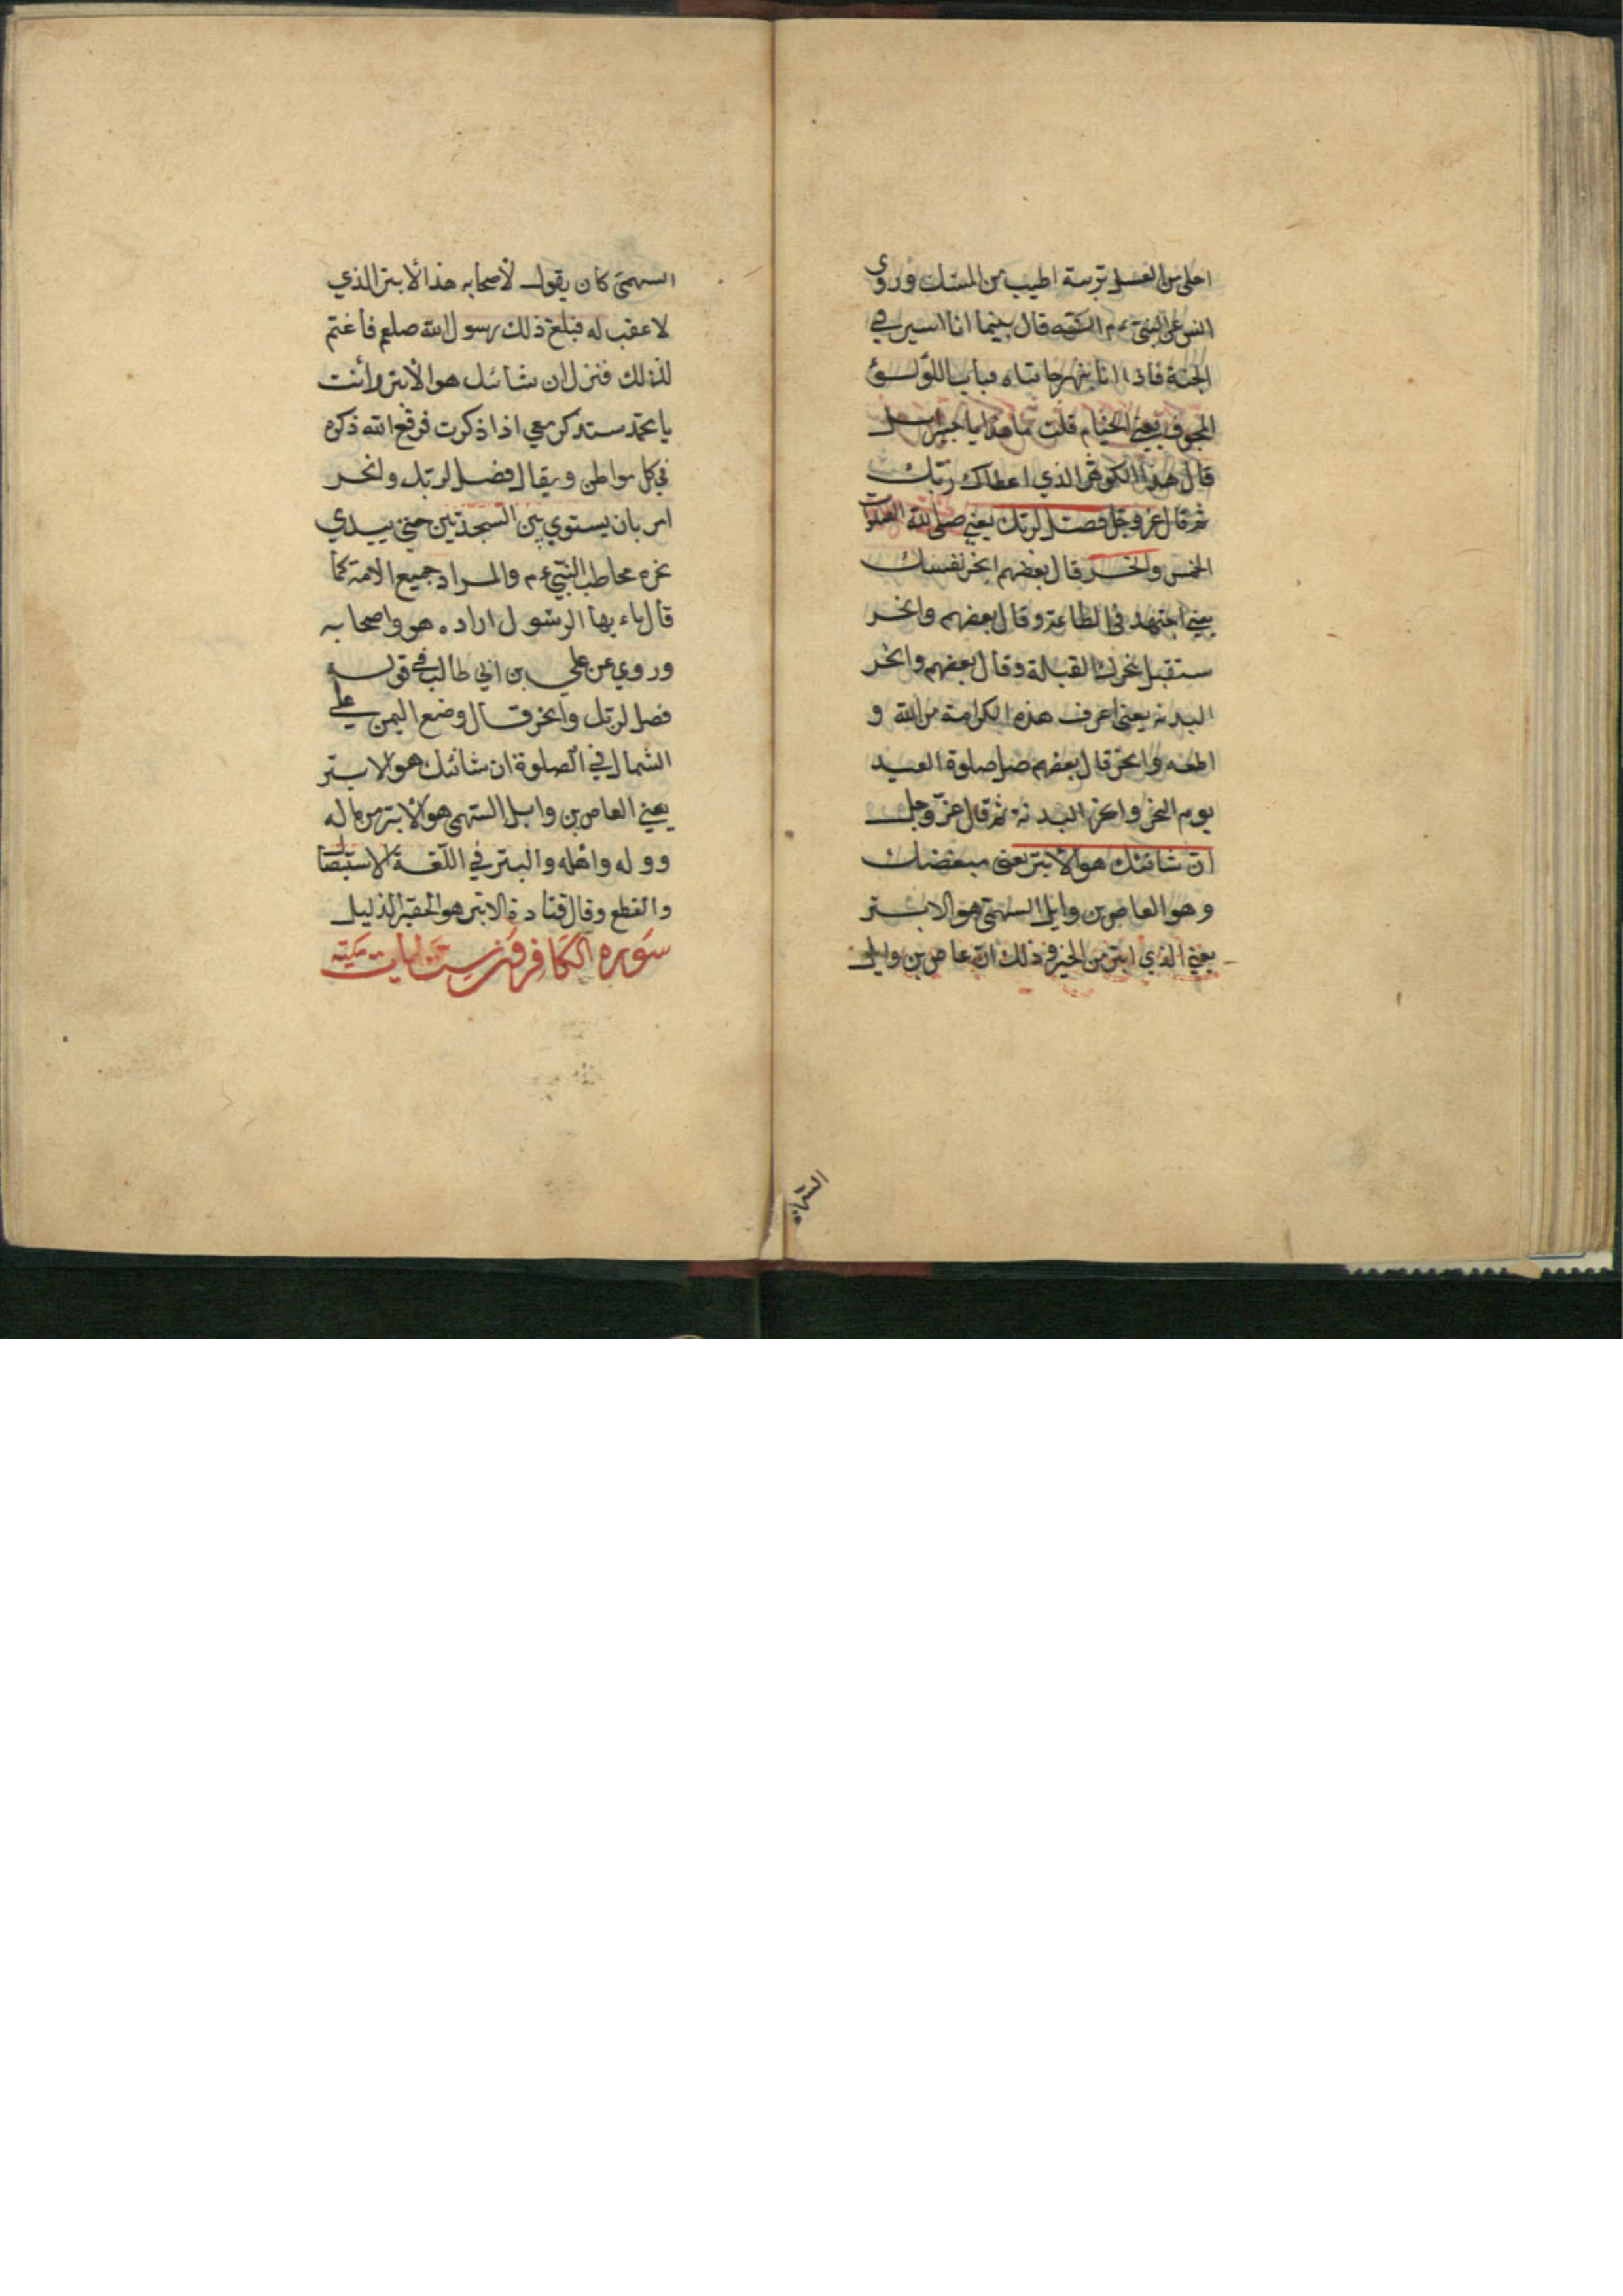 احلى من العسل تربته اطيب من المسك وروى
انس عن النبي ءم انه قال بينما انا اسير في
الجنة فاذا انا بنهر حافتاه قباب اللؤلؤ
المجوف يعني الخيام قلت ما هذا يا جبرايل
قال هذا الكوثر الذي اعطاك ربك
ثم قال عز وجل فصل لربك يعني صلى لله الصلوات
الخمس وانحر قال بعضهم انحر نفسك
يعني اجتهد في الطاعة وقال بعضهم وانحر
ستقبل بنحرك القبلة وقال بعضهم وانحر
البدنه يعني اعرف هذه الكرامة من الله و
اطعه وانحر قال بعضهم صل صلوة العيد
يوم النحر وانحر البدنة ثم قال عز وجل
ان شانئك هو الابتر يعني مبغضك
وهو العاص بن وايل السهمي هو الابتر
يعني الذي ابتر من الخير وذلك ان عاص بن وايل
السهمي
السهمي كان يقول لاصحابه هذا الابتر الذي
لا عقب له فبلغ ذلك رسول الله صلعم فاغتم
لذلك فنزل ان شانئك هو الابتر وأنت
يا محمد ستذكر معي اذا ذكرت فرفع الله ذكره
في كل مواطن ويقال فصل لربك وانحر
امر بان يستوي بين السجدتين حتى يبدي
نحره مخاطب النبي ءم والمراد جميع الامة كما
قال ياءيها الرسول اراد ه هو واصحابه
وروي عن علي بن ابي طالب في قوله
فصل لربك وانحر قال وضع اليمن على
الشمال في الصلوة ان شانئك هو الابتر
يعني العاص بن وايل السهمي هو الابتر من ماله
وو له واهله والبتر في اللغة الاستيصال
والقطع وقال قتادة الابتر هو الحقير الذليل
سوره الكافرون ست ايات مكية